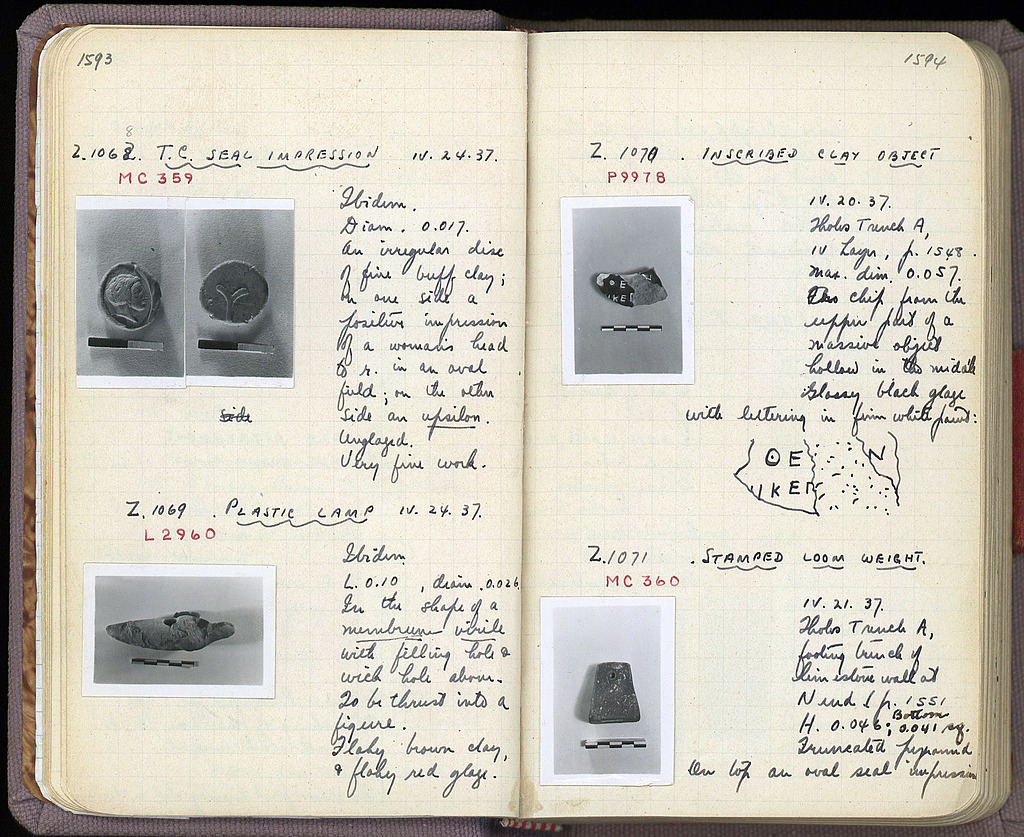 1593
Z.1068. T.C. SEAL IMPRESSION IV. 24. 37.
MC 359
Ibidem.
Diam. 0.017.
An irregular disc
of fine buff clay;
on one side a
positive impression
of a woman's head
to r. in an oval
field; on the other
side an upsilon.
Unglazed.
Very fine work.
Z.1069 . PLASTIC LAMP IV. 24. 37.
L2960
Ibidem.
L. 0.10 , diam. 0.026
In the shape of a
membrum virile
with filling hole &
wick hole above.
To be thrust into a
figure.
Flaky brown clay,
& flaky red glaze.
1594
Z. 1070 . INSCRIBED CLAY OBJECT
P9978
IV. 20. 37.
Tholos Trench A,
IV Layer, p. 1548.
Max. dim. 0.057.
chip from the
upper part of a
massive object
hollow in the middle
Glossy black glaze
with lettering in firm white paint:
ΘE N
IKEΓ
Z.1071 . STAMPED LOOM WEIGHT.
MC 360
IV. 21. 37.
Tholos Trench A,
footing trench of
limestone wall at
N end p. 1551
H. 0.046; Bottom 0.041 sq.
Truncated pyramid
On top an oval seal impression